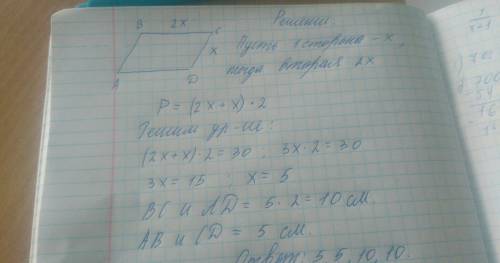 B 2x C
Решение.
x
Пусть 1 сторона - x,
тогда вторая 2x
A D
P = (2x + x) · 2
Решим ур-ие:
(2x+x)·2=30 3x·2=30
3x=15 x=5
BC и AD = 5 · 2 = 10 см.
AB и CD = 5 см.
Ответ: 5, 5, 10, 10.